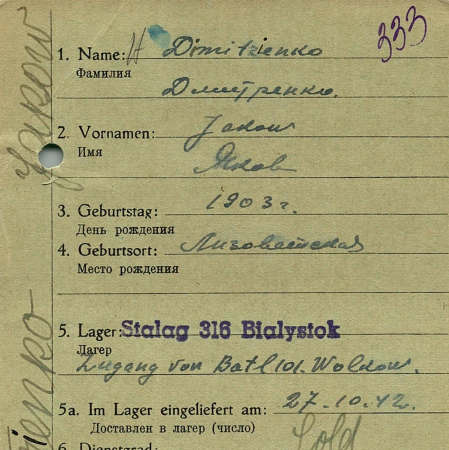 333
1. Name: Dimitrienko
Фамилия
Дмитренко.
2. Vornamen: Jakow
Имя
Яков
3. Geburtstag: 1903 г.
День рождения
4. Geburtsort: Лизоветская
Место рождения
5. Lager: Stalag 316 Bialystok
Лагер
Zugang von Batl 101. Woldow.
5a. Im Lager eingeliefert am: 27.10.42.
Доставлен в лагер (число)
6. Dienstgrad: Sold
Jakow
ienko